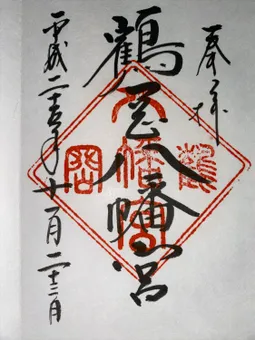 奉拝
鶴岡八幡宮
平成二十五年十一月二十二日